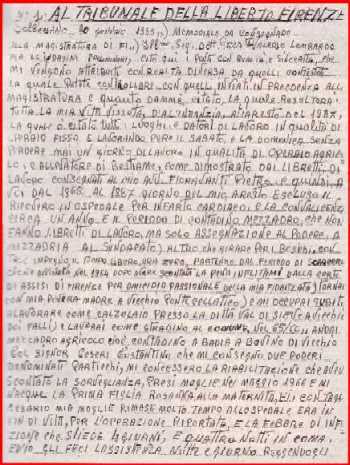 AL TRIBUNALE DELLA LIBERTÀ FIRENZE
SOLLICCIANO, 20 GENNAIO 1993,, MEMORIALE DA CONSEGNARE
ALLA MAGISTRATURA DI FI,,
MI VENGONO ATTRIBUITI CON REALTÀ DIVERSA DA QUELLI
LA QUALE POTETE CONTROLLARE, CON QUELLI INVIATI IN PRECEDENZA ALLA
MAGISTRATURA E QUANTO DAMME, CITATO, LA QUALE RISULTERÀ
TUTTA LA MIA VITA VISSUTA, DALL'INFANZIA, ALL'ARRESTO DEL 1987,
LA QUALE O CITATO TUTTI I LUOGHI E DATORI DI LAVORO IN QUALITÀ DI
FISSO E LAVORANDO PURE IL SABATO, E LA DOMENICA SENZA
PERDERE MAI UN GIORNO DI LAVORO IN QUALITÀ DI OPERAIO AGRICO
LO, E ALLEVATORE DI BESTIAME, COME DIMOSTRATO DAI LIBRETTI, DI
LAVORO CONSEGNATI AL MIO AVV. FIORAVANTI PIETRO, E QUINDI, A
VOI DAL 1968. AL 1987 GIORNO DEL MIO ARRESTO ESCLUSO IL
RICOVERO IN OSPEDALE PER INFARTO CARDIACO, E LA CONVALESCENZA
CIRCA UN ANNO. E IL PERIODO DI CONTADINO MEZZADRO, CHE NON
FANNO LIBRETTI DI LAVORO, MA SOLO ASSEGNAZIONE AL PODERE, A
MEZZADRIA AL SINDACATO) ALTRO CHE GIRARE PER I BOSCHI, CON
IL TEMPO LIBERO, ERA ZERO, PARTENDO DAL PERIODO DI SCARCERA
ZIONE AVVENUTA NEL 1964 DOPO AVERE SCONTATA LA PENA INFLITTAMI DALLA CORTE
DI ASSISI DI FIRENZE PER OMICIDIO PASSIONALE DELLA MIA FIDANZATA) TORNAI
CON MIA POVERA MADRE A VICCHIO PONTE E MI OCCUPAI SUBITO
A LAVORARE COME CALZOLAIO PRESSO LA DITTA VAL DI SIEVE A VICCHIO
E LAVORAI COME STRADINO AL COMUNE, NEL 65/66,, ANDAI
MEZZADRO AGRICOLO CIOÈ, CONTADINO A BADIA A BOVINO DI VICCHIO
COL SIGNOR CESERI COSTANTINO CHE MI CONSEGNÒ DUE PODERI
DENOMINATI PARTICCHI, MI CONCESSERO LA RIABILITAZIONE CHE AVEVO
SCONTATO LA SORVEGLIANZA, PRESI MOGLIE NEL MAGGIO 1966 E MI
NACQUE LA PRIMA FIGLIA ROSANNA ALLA MATERNITÀ, E LÌ CON TAGLIO
CESARIO MIA MOGLIE RIMASE MOLTO TEMPO ALL'OSPEDALE ERA IN
FIN DI VITA, PER L'OPERAZIONE RIPORTATA, E LA FEBBRE DI INFE
ZIONE CHE STIEDE 4 GIORNI, E QUATTRO NOTTI IN COMA.
ED IO GLI FECI L'ASSISTENZA NOTTE E GIORNO REGGENDOGLI